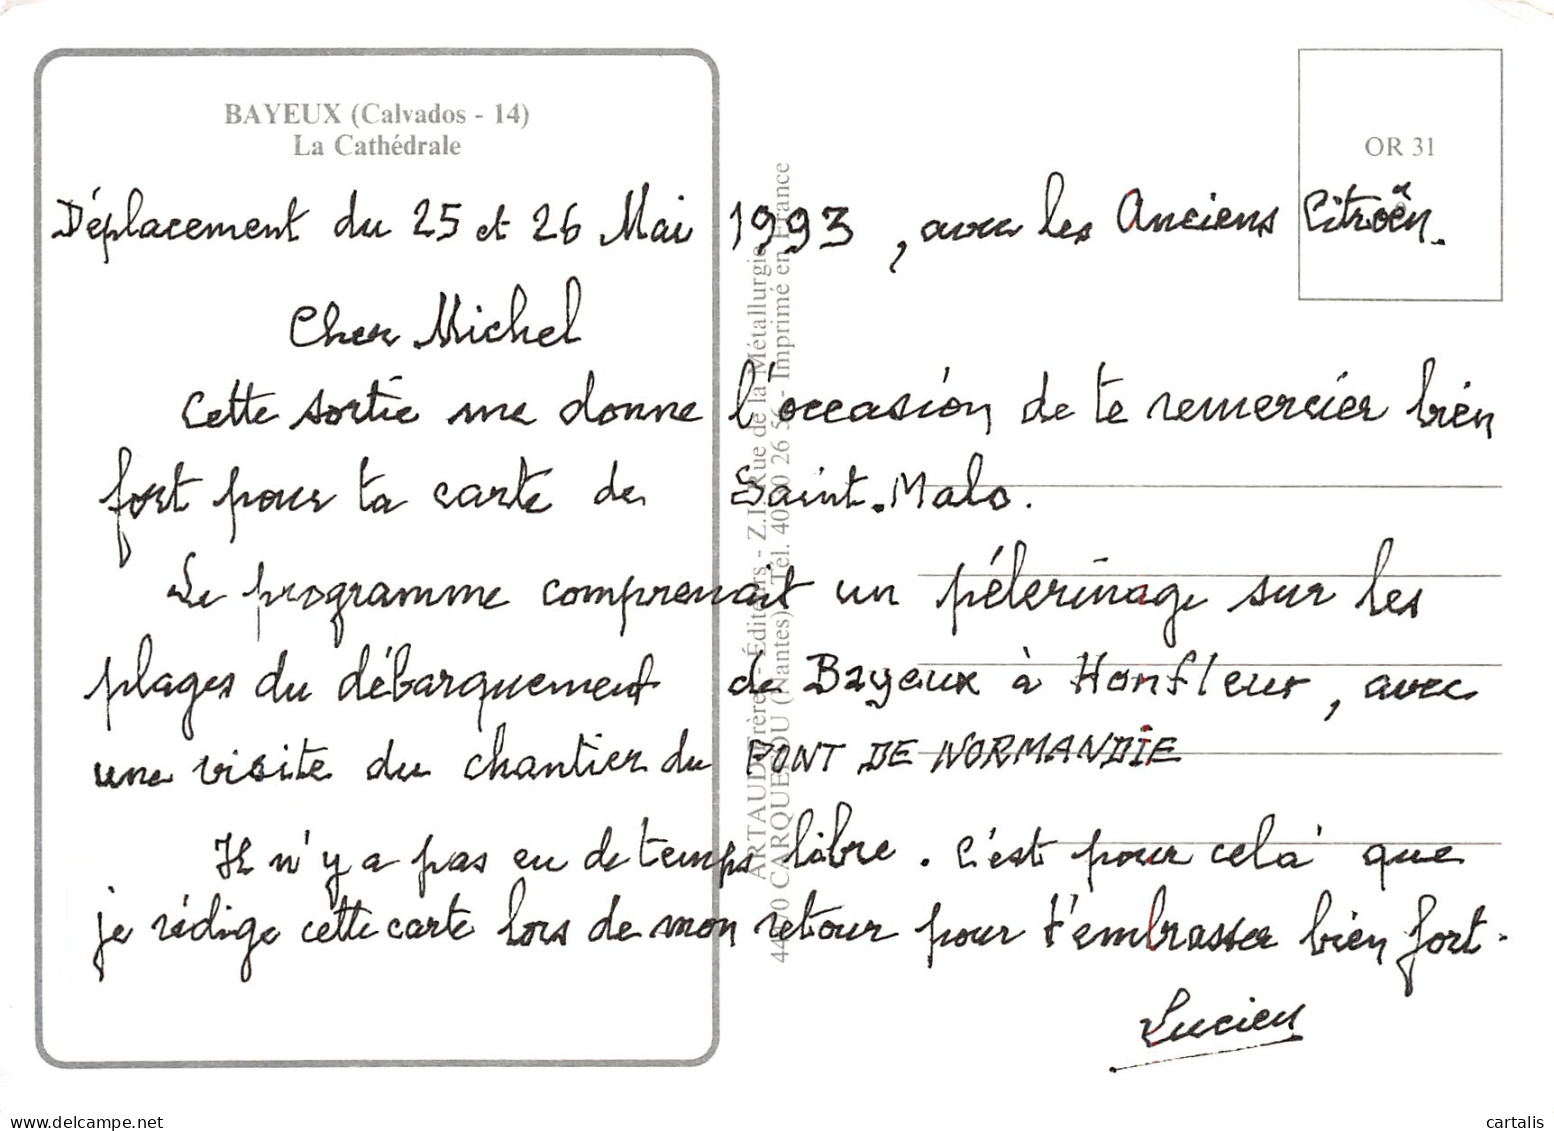 BAYEUX (Calvados - 14)
La Cathédrale
OR 31
Déplacement du 25 et 26 Mai 1993, avec les Anciens Citroën.
Cher Michel
Cette sortie me donne l'occasion de te remercier bien
fort pour ta carte de Saint-Malo.
Le programme comprenait un pélerinage sur les
plages du débarquement de Bayeux à Honfleur, avec
une visite du chantier du PONT DE NORMANDIE
Il n'y a pas eu de temps libre. C'est pour celà que
je rédige cette carte lors de mon retour pour t'embrasser bien fort.
Lucien
ARTAUD Frères - Éditeurs - Z.I. Rue de la Métallurgie
CARQUEFOU (Nantes) Tél. - Imprimé en France
www.delcampe.net
cartalis